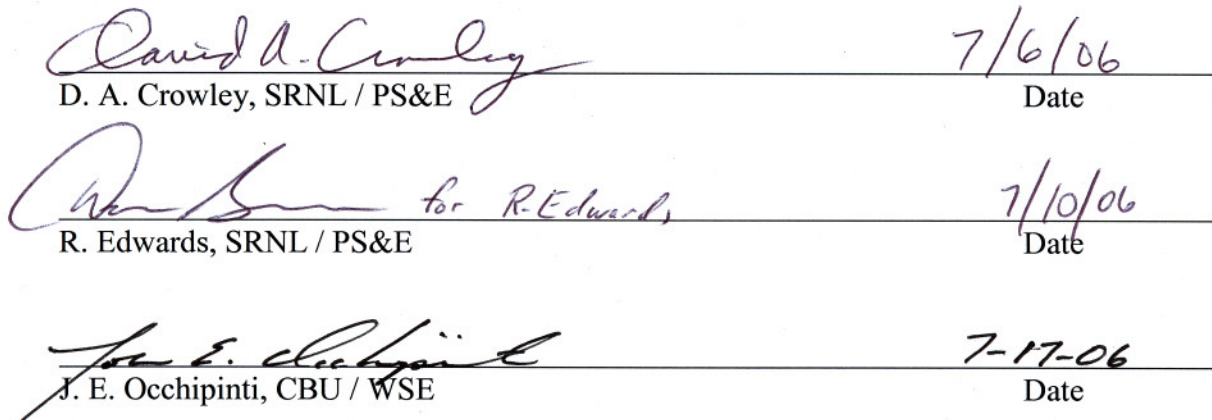 David A. Crowley 7/6/06
D. A. Crowley, SRNL / PS&E Date
for R. Edwards 7/10/06
R. Edwards, SRNL / PS&E Date
John E. Occhipinti 7-17-06
J. E. Occhipinti, CBU / WSE Date